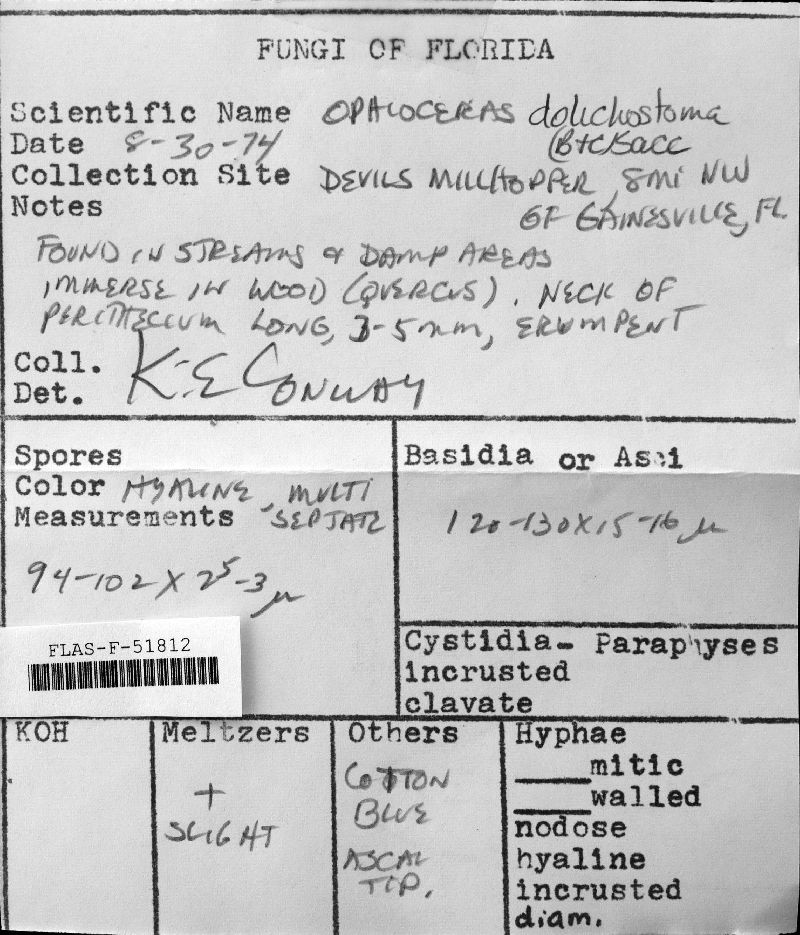 FUNGI OF FLORIDA
Scientific Name OPHIOCERAS dolichostoma
(B+C) Sacc
Date 8-30-74
Collection Site DEVILS MILLHOPPER, 8mi NW
OF GAINESVILLE, FL
Notes
FOUND IN STREAMS & DAMP AREAS
IMMERSE IN WOOD (QUERCUS). NECK OF
PERITHECIUM LONG, 3-5mm, ERUMPENT
Coll.
Det. K.E CONWAY
Spores
Color HYALINE, MULTI
SEPTATE
Measurements
94-102 X 2⁵-3 µ
Basidia or Asci
120-130X15-16 µ
FLAS-F-51812
Cystidia- Paraphyses
incrusted
clavate
KOH
Meltzers
+
SLIGHT
Others
COTTON
BLUE
ASCAL
TIP.
Hyphae
_____mitic
_____walled
nodose
hyaline
incrusted
diam.